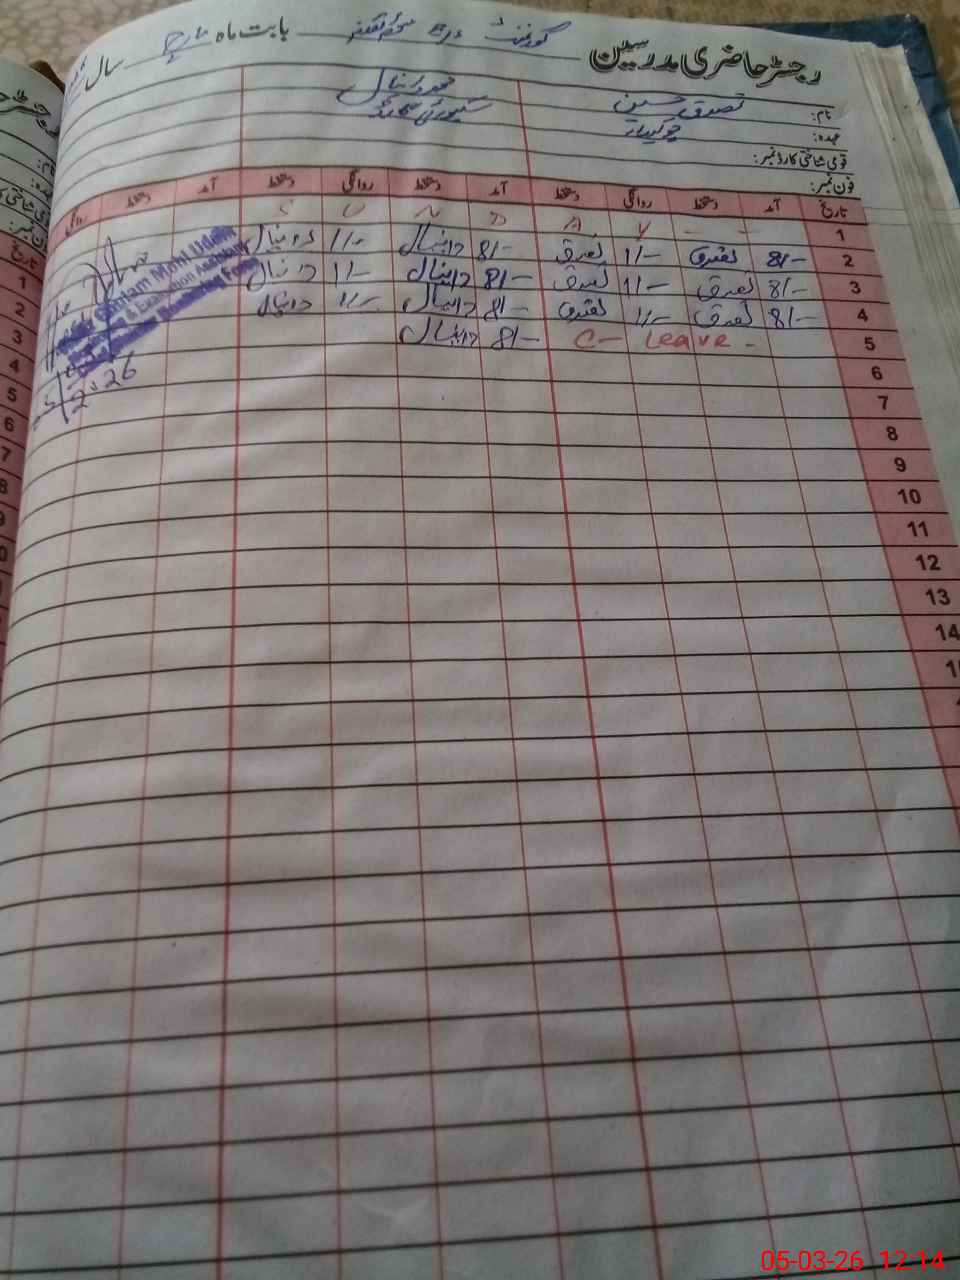 رجسٹر حاضری مدرسین گورنمنٹ بابت ماہ مارچ سال
نام: تصدق حسین محمد دانیال
عہدہ: چوکیدار سیکورٹی گارڈ
قومی شناختی کارڈ نمبر:
فون نمبر:
تاریخ آمد دستخط روانگی دستخط آمد دستخط روانگی دستخط آمد دستخط روانگی
1 S U N D A Y - -
2 8/- تصدق 1/- تصدق 8/- دانیال 1/- دانیال
3 8/- تصدق 1/- تصدق 8/- دانیال 1/- دانیال
4 8/- تصدق 1/- تصدق 8/- دانیال 1/- دانیال
5 C- Leave - 8/- دانیال
6
7
8
9
10
11
12
13
14
Ghulam Mohi Uddin
& Evaluation Assistant
تاریخ
1
2
3
4
5
6
7
8
05-03-26 12:14